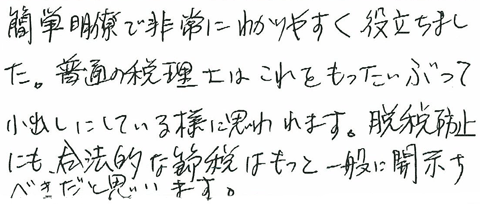 簡単明瞭で非常にわかりやすく役立ちまし
た。普通の税理士はこれをもったいぶって
小出しにしている様に思われます。脱税防止
にも、合法的な節税はもっと一般に開示す
べきだと思います。